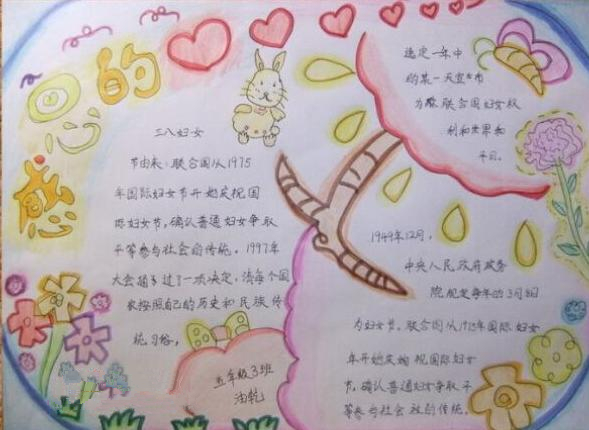 感恩的心
三八妇女
节由来:联合国从1975
年国际妇女节开始庆祝国
际妇女节,确认普通妇女争取
平等参与社会的传统。1997年
大会通过了一项决定,请每个国
家按照自己的历史和民族传
统习俗,
选定一年中
的某一天宣布
为联合国妇女权
利和世界和
平日。
1949年12月,
中央人民政府政务
院规定每年的3月8日
为妇女节。联合国从1975年国际妇女
年开始庆祝国际妇女
节,确认普通妇女争取平
等参与社会的传统。
五年级3班